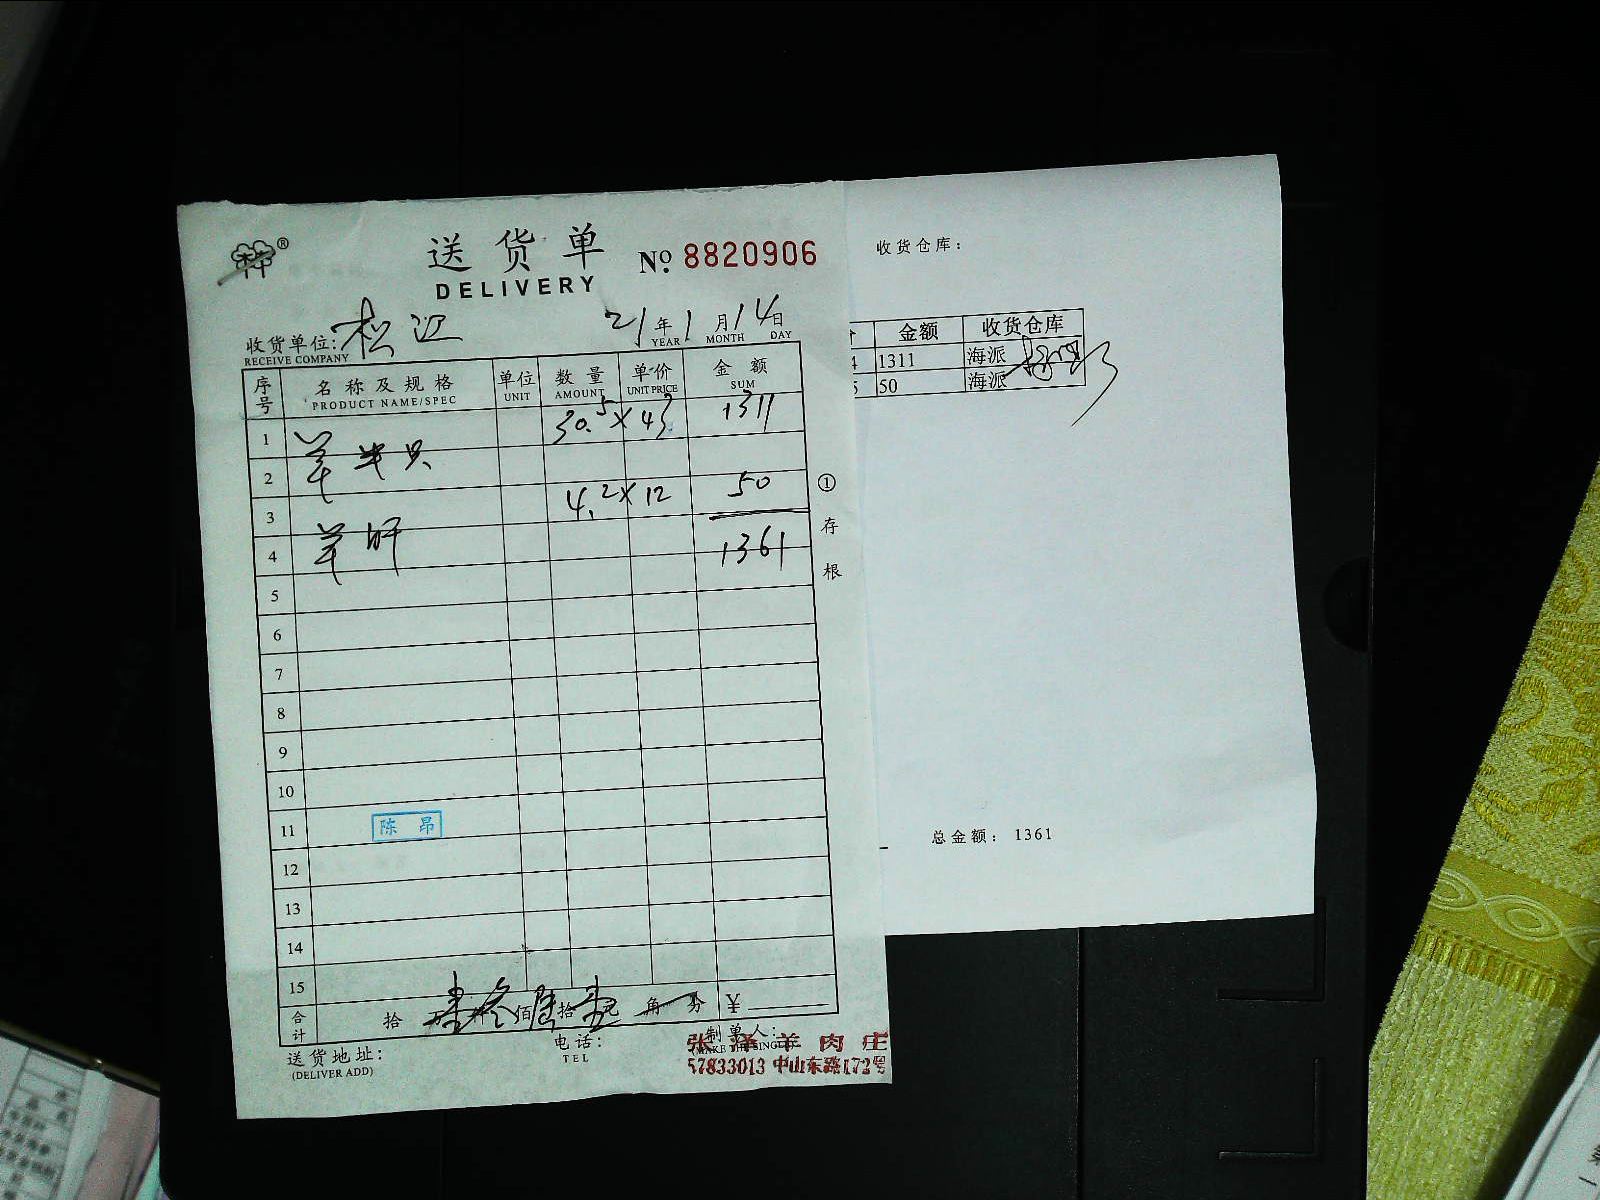 送货单
DELIVERY
No. 8820906
收货单位: 松江
RECEIVE COMPANY
21年1月14日
YEAR MONTH DAY
序号 名称及规格 单位 数量 单价 金额
PRODUCT NAME/SPEC UNIT AMOUNT UNIT PRICE SUM
1 羊半只 30.5×43 1311
2
3 羊肝 4.2×12 50
4 1361
5
6
7
8
9
10
11 陈昂
12
13
14
15
合计 拾 壹 叁 佰 陆 拾 壹 元 角 分 ¥
送货地址:
(DELIVER ADD)
电话:
TEL
制单人:
张泽羊肉庄
57833013 中山东路172号
①存根
收货仓库:
金额 收货仓库
4 1311 海派
5 50 海派
总金额: 1361